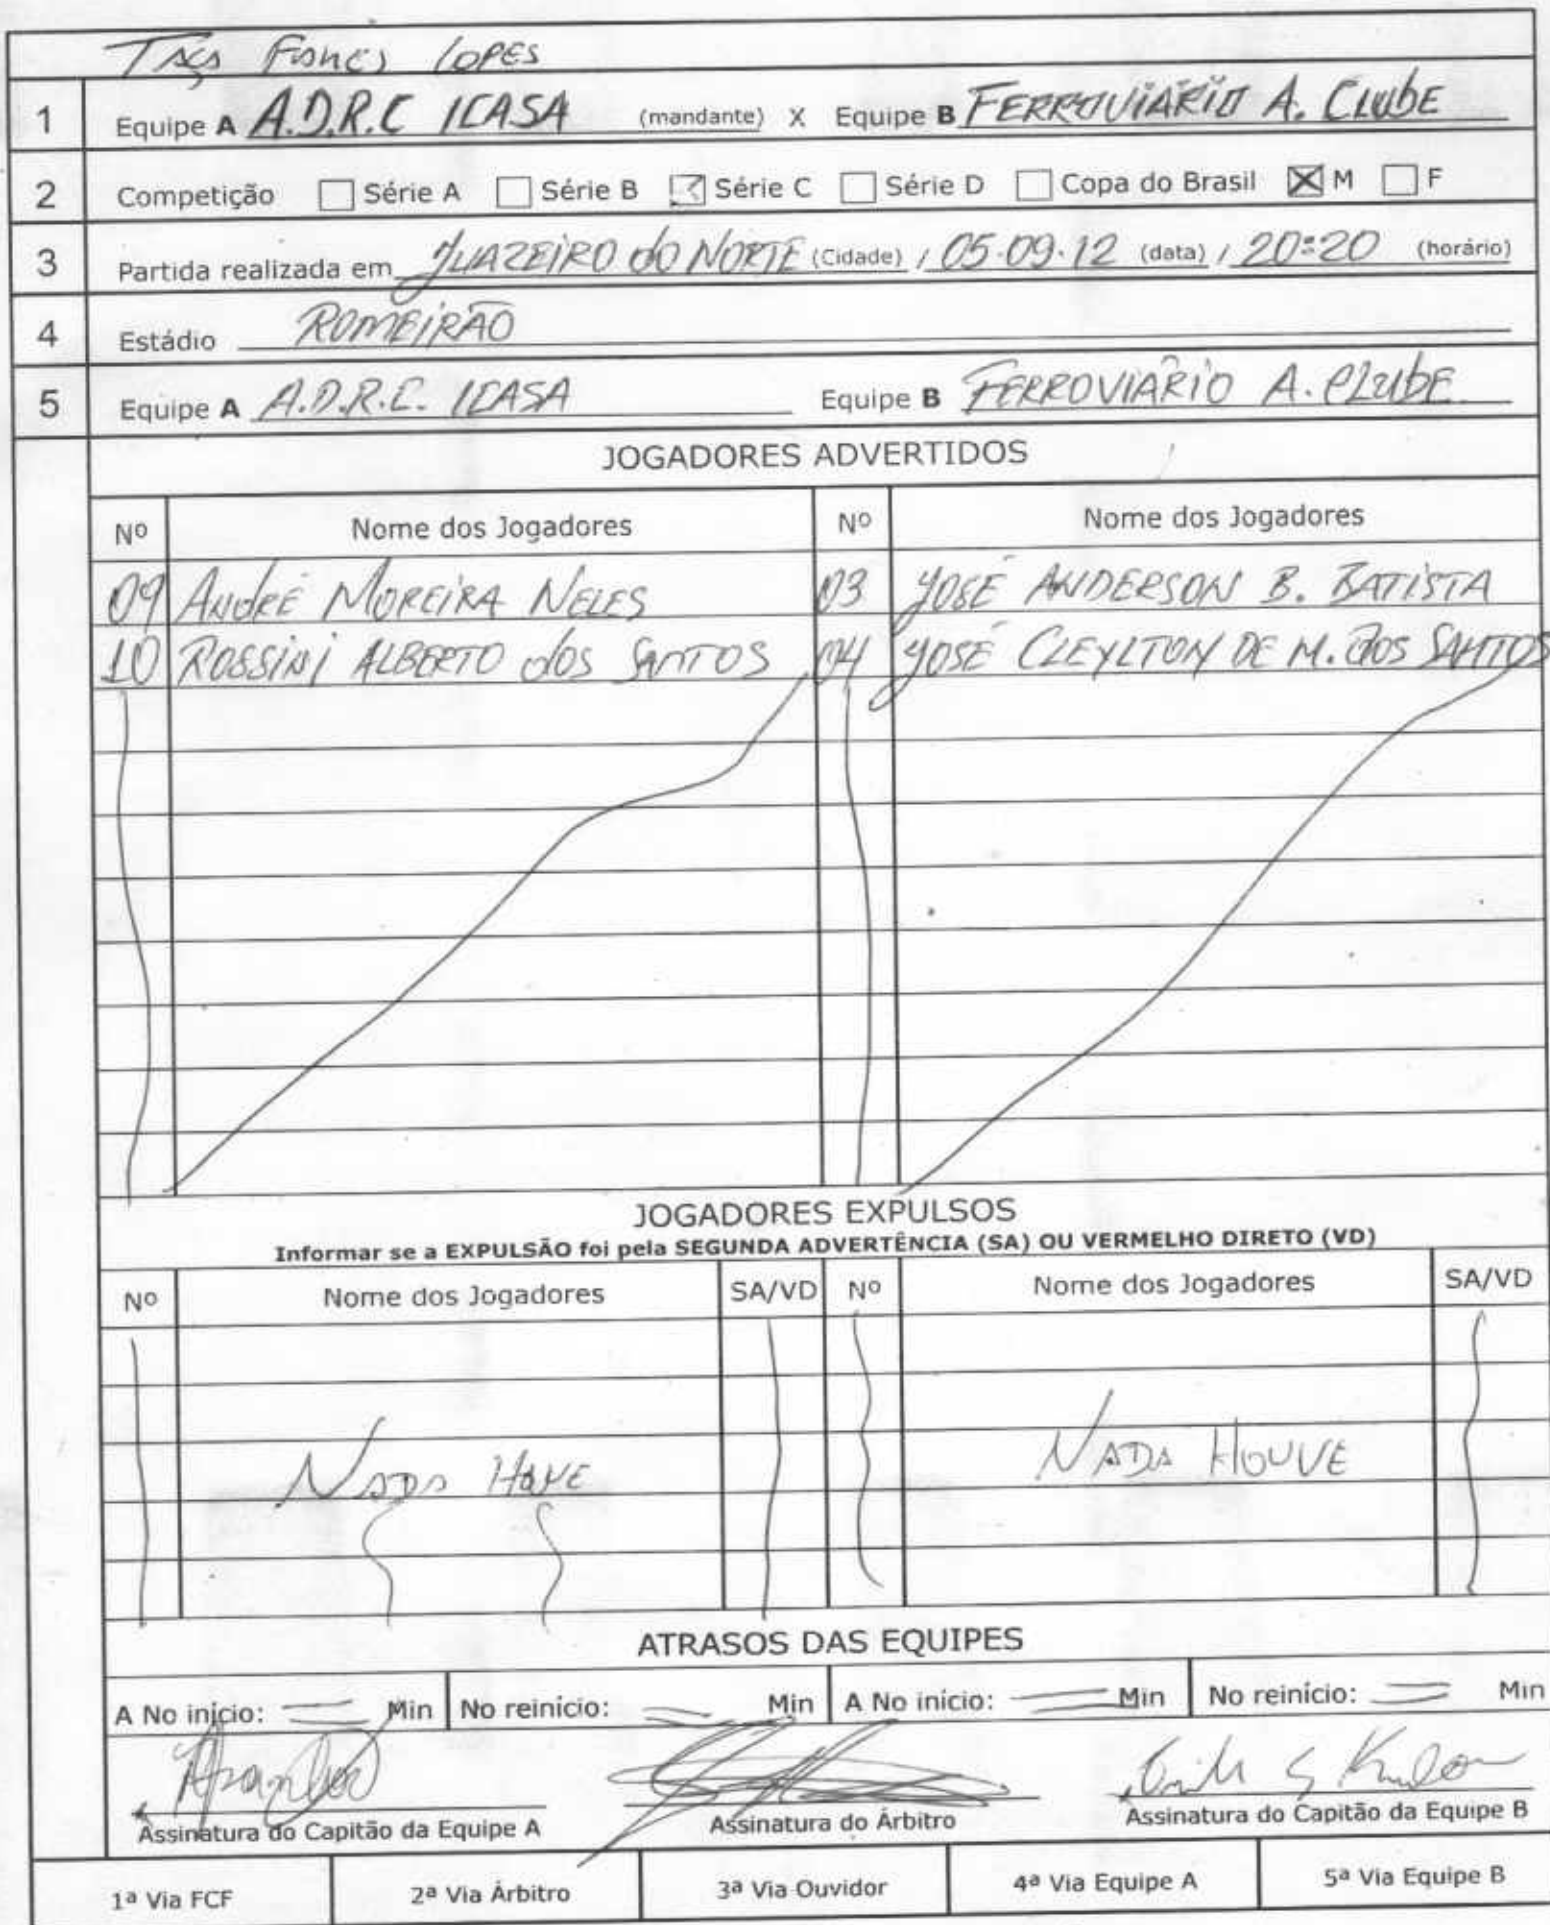 TAÇA FARES LOPES
1 Equipe A A.D.R.C ICASA (mandante) X Equipe B FERROVIÁRIO A. CLUBE
2 Competição Série A Série B Série C Série D Copa do Brasil M F
3 Partida realizada em JUAZEIRO DO NORTE (Cidade) / 05.09.12 (data) / 20:20 (horário)
4 Estádio ROMEIRÃO
5 Equipe A A.D.R.C. ICASA Equipe B FERROVIÁRIO A. CLUBE
JOGADORES ADVERTIDOS
Nº Nome dos Jogadores Nº Nome dos Jogadores
09 ANDRÉ MOREIRA NELES 03 JOSÉ ANDERSON B. BATISTA
10 ROSSINI ALBERTO DOS SANTOS 04 JOSÉ CLEYLTON DE M. DOS SANTOS
JOGADORES EXPULSOS
Informar se a EXPULSÃO foi pela SEGUNDA ADVERTÊNCIA (SA) OU VERMELHO DIRETO (VD)
Nº Nome dos Jogadores SA/VD Nº Nome dos Jogadores SA/VD
NADA HOUVE NADA HOUVE
ATRASOS DAS EQUIPES
A No início: Min No reinício: Min A No início: Min No reinício: Min
Assinatura do Capitão da Equipe A Assinatura do Árbitro Assinatura do Capitão da Equipe B
1ª Via FCF 2ª Via Árbitro 3ª Via Ouvidor 4ª Via Equipe A 5ª Via Equipe B